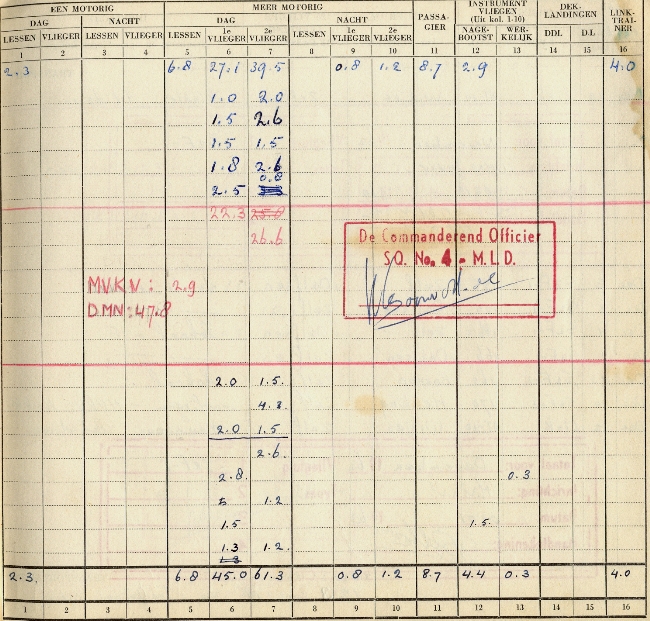 EEN MOTORIG MEER MOTORIG PASSA-GIER INSTRUMENT VLIEGEN (Uit kol. 1-10) DEK-LANDINGEN LINK-TRAI-NER
DAG NACHT DAG NACHT
LESSEN VLIEGER LESSEN VLIEGER LESSEN 1e VLIEGER 2e VLIEGER LESSEN 1e VLIEGER 2e VLIEGER NAGE-BOOTST WER-KELIJK DDL D.L
1 2 3 4 5 6 7 8 9 10 11 12 13 14 15 16
2.3 6.8 27.1 39.5 0.8 1.2 8.7 2.9 4.0
1.0 2.0
1.5 2.6
1.5 1.5
1.8 2.6
0.8
2.5
22.3 25.8
26.6
De Commanderend Officier
SQ. No. 4 - M.L.D.
M.V.K.V.: 2.9
DMN: 47.8
2.0 1.5.
4.3.
2.0 1.5
2.6.
2.8. 0.3
5 1.2
1.5 1.5.
1.3 1.2.
1.3
2.3. 6.8 45.0 61.3 0.8 1.2 8.7 4.4 0.3 4.0
1 2 3 4 5 6 7 8 9 10 11 12 13 14 15 16